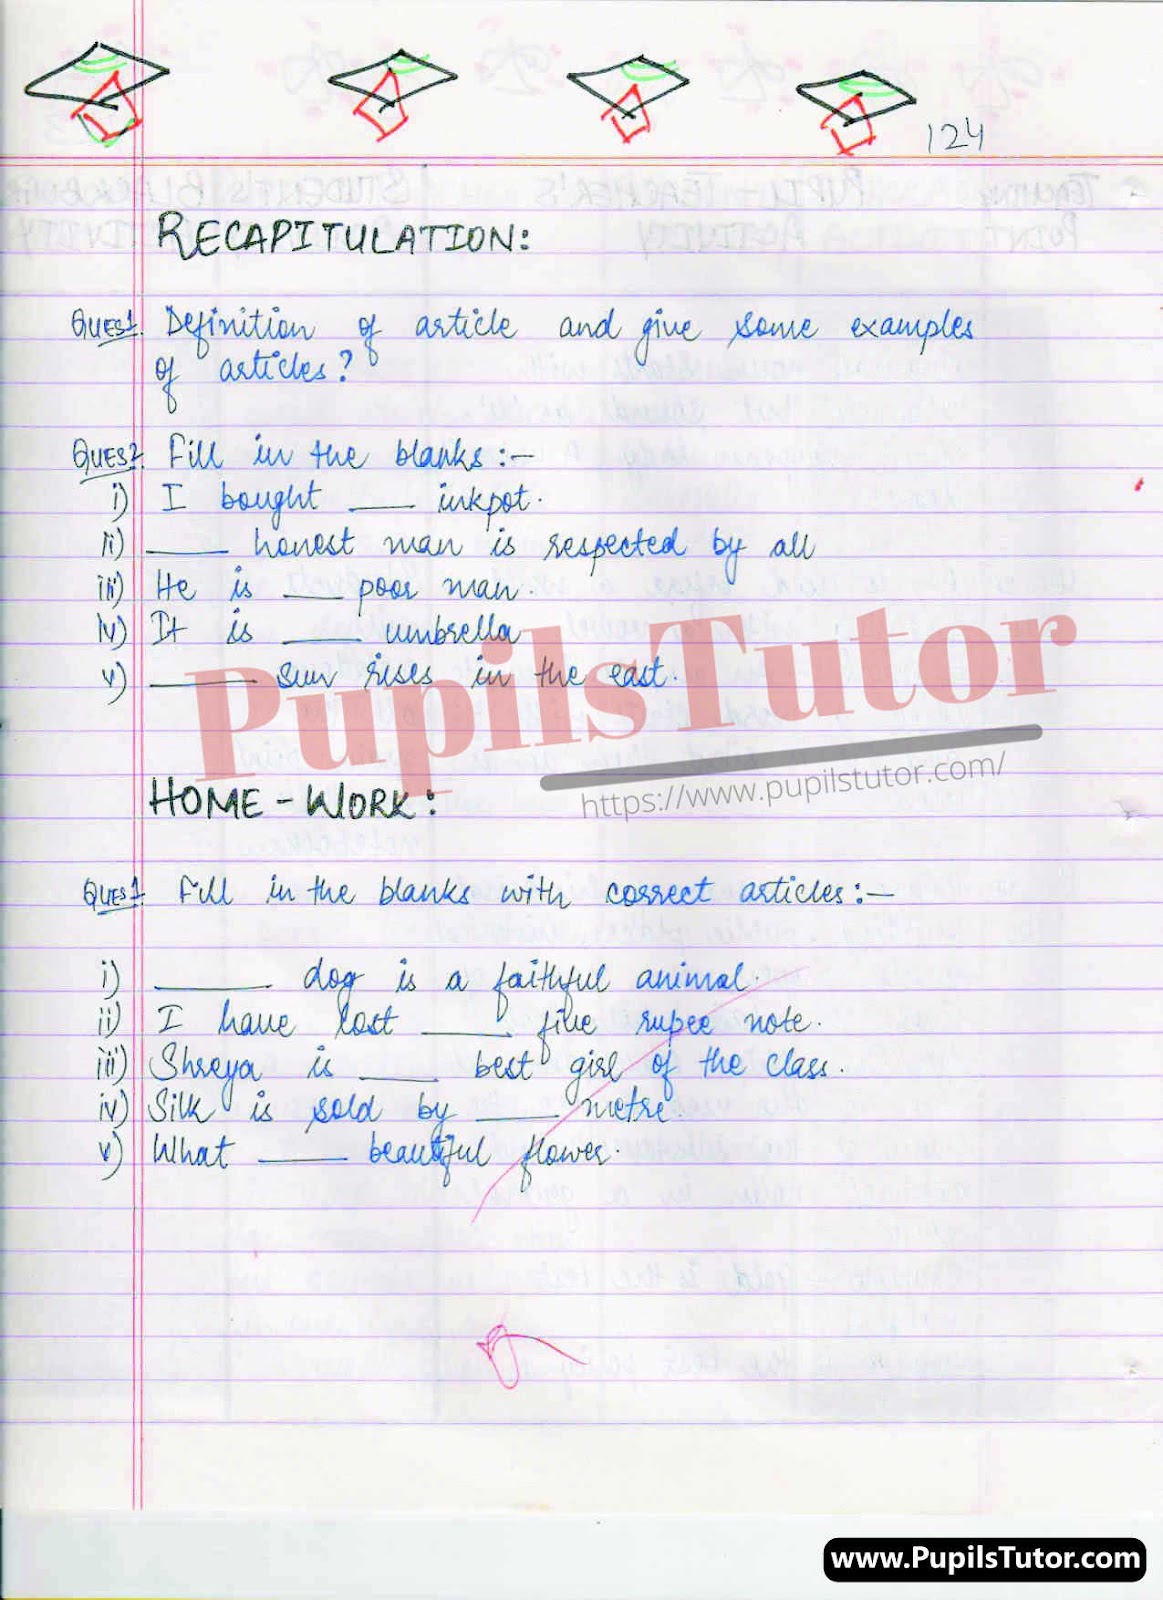 124
RECAPITULATION:
QUES1. Definition of article and give some examples
of articles?
QUES2. Fill in the blanks :-
i) I bought ___ inkpot.
ii) ___ honest man is respected by all
iii) He is ___ poor man.
iv) It is ___ umbrella
v) ___ Sun rises in the east.
PupilsTutor
https://www.pupilstutor.com/
HOME-WORK:
QUES1. Fill in the blanks with correct articles:-
i) ___ dog is a faithful animal.
ii) I have lost ___ five rupee note.
iii) Shreya is ___ best girl of the class.
iv) Silk is sold by ___ metre.
v) What ___ beautiful flower.
www.PupilsTutor.com